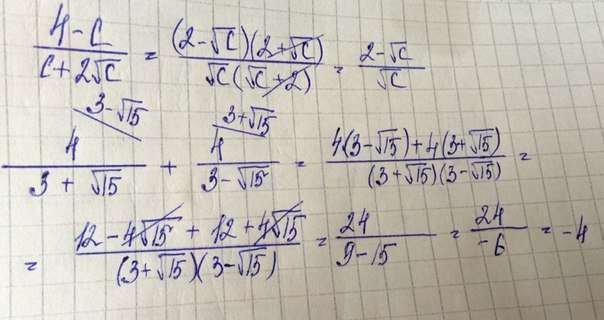 (4-c)/(c+2√c) = ((2-√c)(2+√c))/(√c(√c+2)) = (2-√c)/√c
3-√15 3+√15
4/(3+√15) + 4/(3-√15) = (4(3-√15)+4(3+√15))/((3+√15)(3-√15)) =
= (12-4√15+12+4√15)/((3+√15)(3-√15)) = 24/(9-15) = 24/-6 = -4